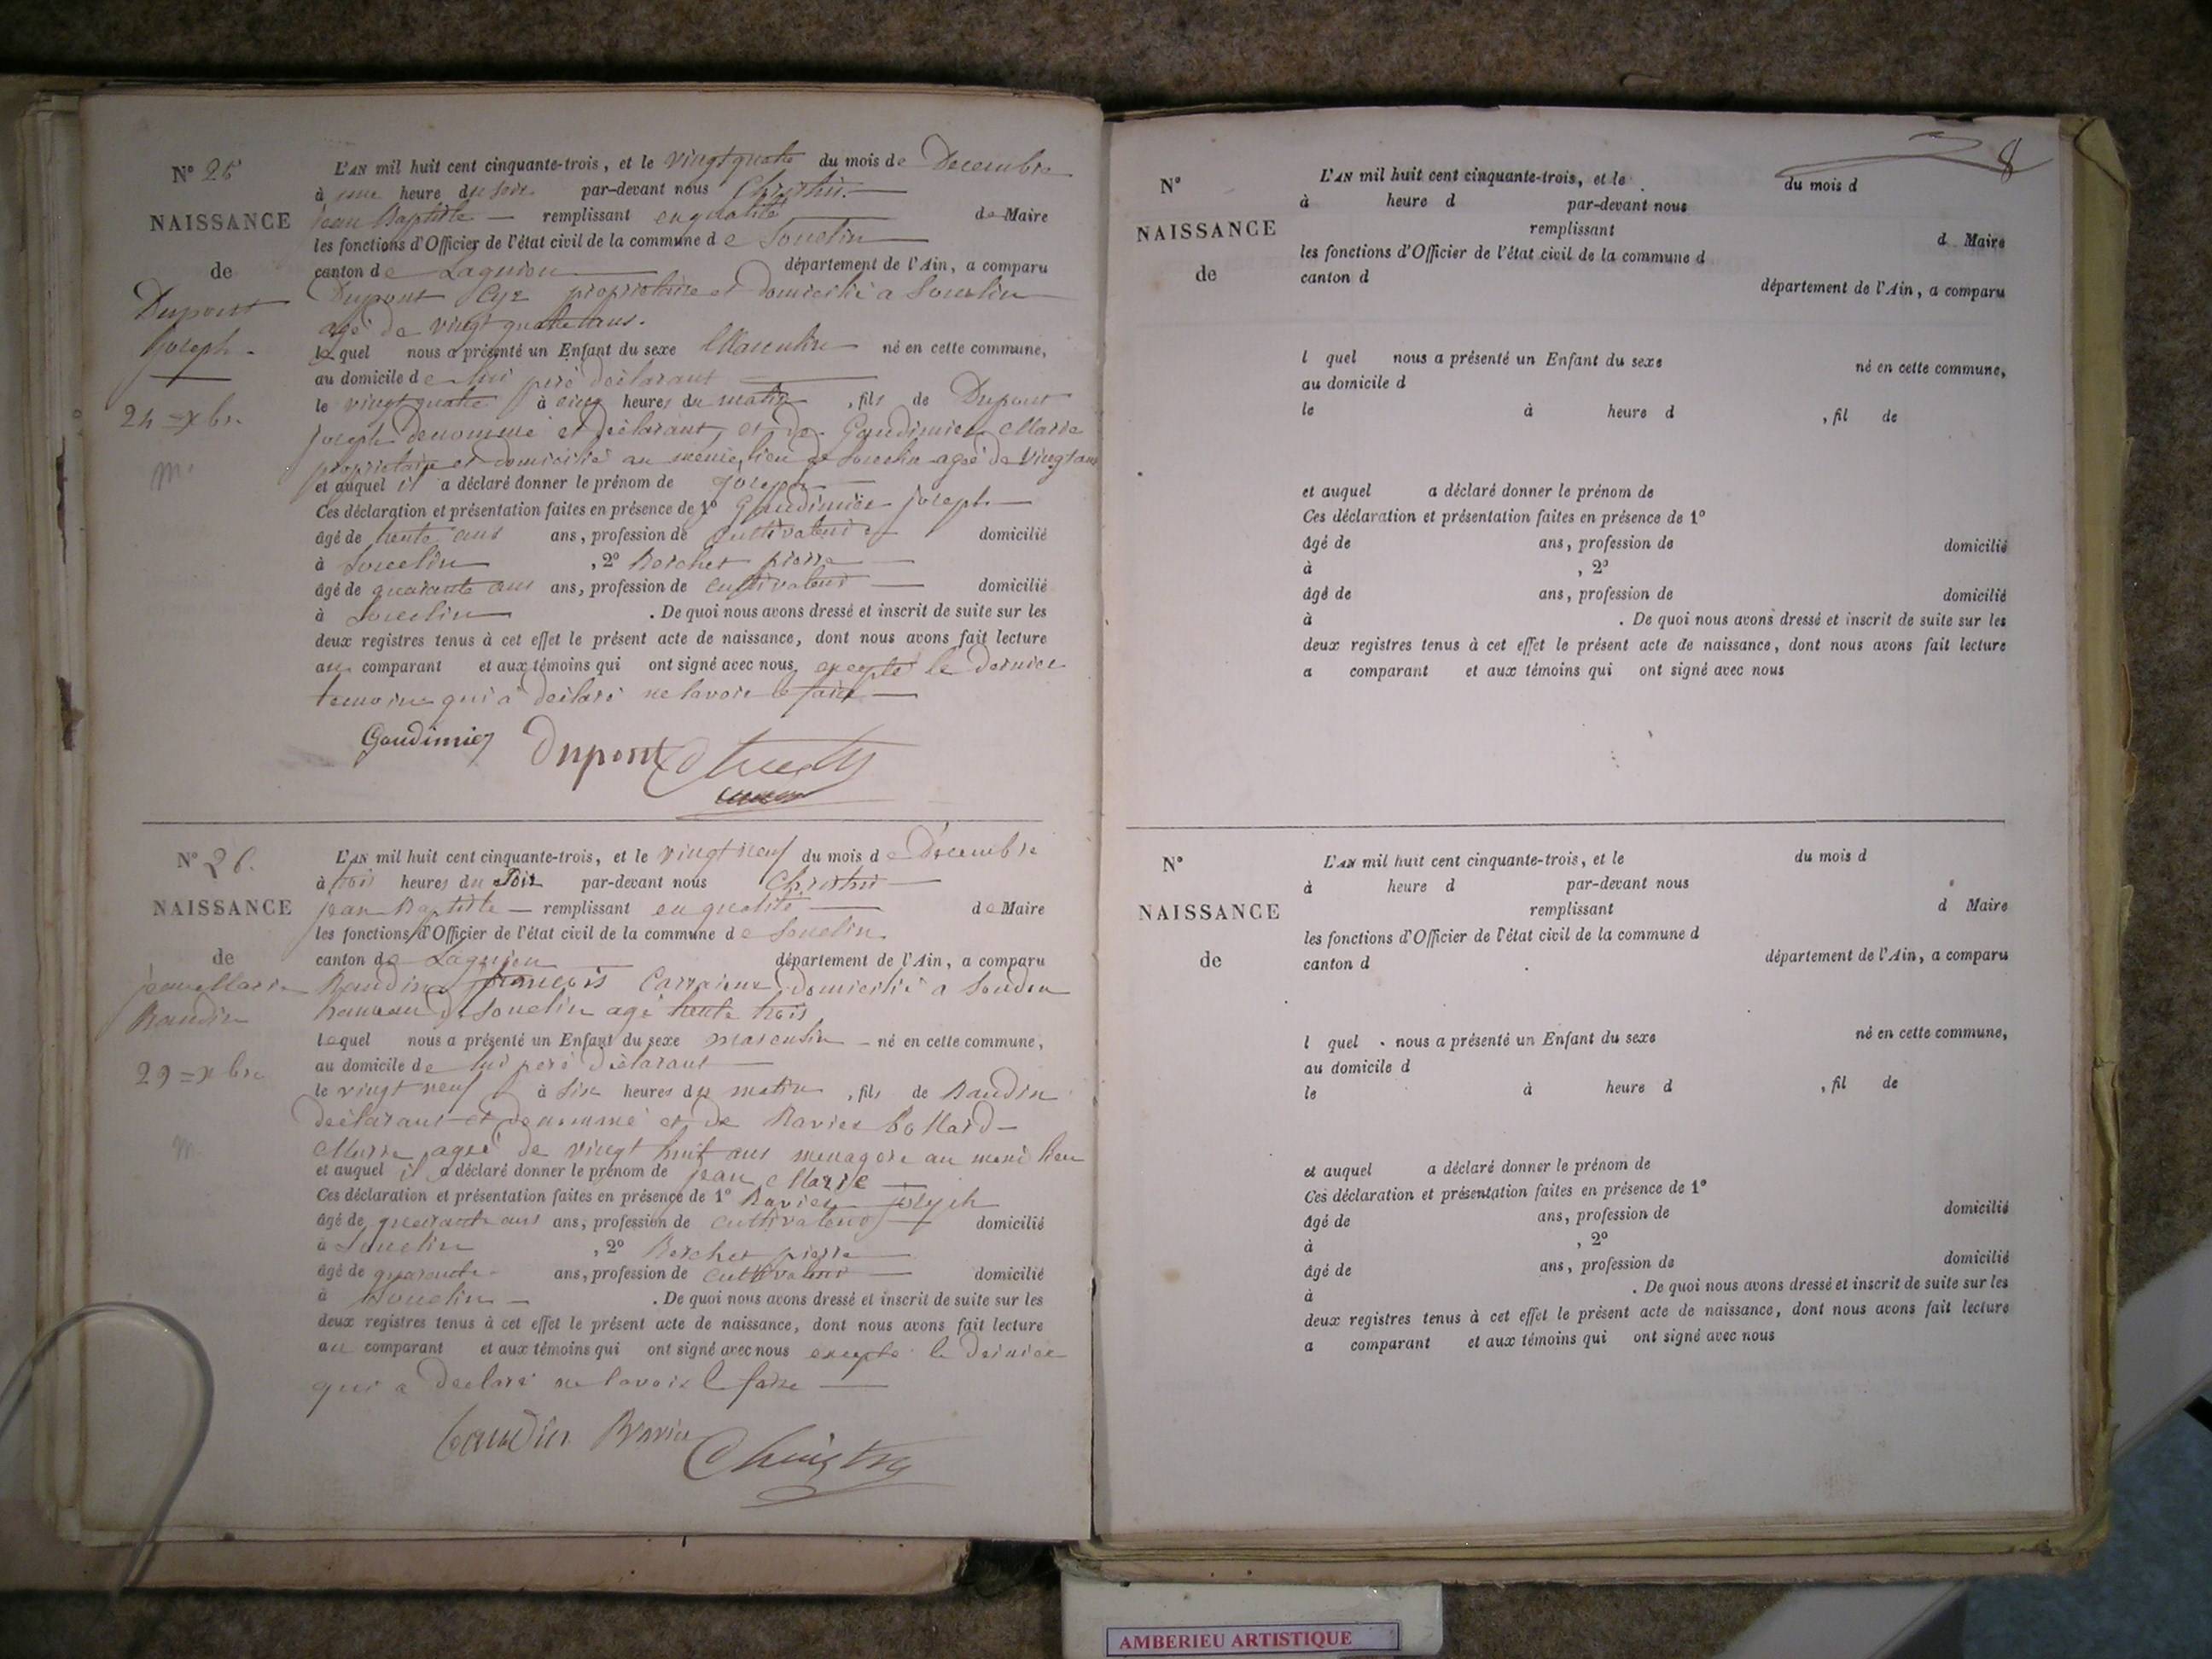 N° 25
NAISSANCE
de
Dupont
joseph
24 = xbre
L'AN mil huit cent cinquante-trois, et le vingt quatre du mois de Decembre
à une heure du soir par-devant nous Christin
jean Baptiste remplissant en qualité de Maire
les fonctions d'Officier de l'état civil de la commune de Souclin
canton de Lagnieu département de l'Ain, a comparu
Dupont propriétaire et domicilié a Souclin
agé de vingt quatre ans.
lequel nous a présenté un Enfant du sexe Masculin né en cette commune,
au domicile de lui peré déclarant
le vingt quatre à cinq heures du matin, fils de Dupont
joseph denommé et déclarant, et de Gaudimier Marie
propriétaire et domicilié au meme lieu de Souclin agée de vingt ans
et auquel il a déclaré donner le prénom de joseph
Ces déclaration et présentation faites en présence de 1° Gaudimier joseph
âgé de trente ans ans, profession de cultivateur domicilié
à Souclin, 2° Berchet pierre
âgé de quarante ans ans, profession de cultivateur domicilié
à Souclin. De quoi nous avons dressé et inscrit de suite sur les
deux registres tenus à cet effet le présent acte de naissance, dont nous avons fait lecture
au comparant et aux témoins qui ont signé avec nous excepté le dernier
temoins qui a déclaré ne savoir le faire
Gaudimier Dupont
N° 26.
NAISSANCE
de
jean Marie
Baudin
29 = xbre
L'AN mil huit cent cinquante-trois, et le vingt neuf du mois de Decembre
à trois heures du Soir par-devant nous Christin
jean Baptiste remplissant en qualité de Maire
les fonctions d'Officier de l'état civil de la commune de Souclin.
canton de Lagnieu département de l'Ain, a comparu
Baudin francois domicilié a Soudon
hameau de Souclin agé trente trois
lequel nous a présenté un Enfant du sexe masculin né en cette commune,
au domicile de lui peré déclarant
le vingt neuf à six heures du matin, fils de Baudin
déclarant et denommé et de Ravier
Marie agée de vingt huit ans menagere au meme lieu
et auquel il a déclaré donner le prénom de jean Marie
Ces déclaration et présentation faites en présence de 1° Ravier joseph
âgé de quarante ans ans, profession de cultivateur domicilié
à Souclin, 2° Berchet pierre
âgé de quarante ans, profession de cultivateur domicilié
à Souclin. De quoi nous avons dressé et inscrit de suite sur les
deux registres tenus à cet effet le présent acte de naissance, dont nous avons fait lecture
au comparant et aux témoins qui ont signé avec nous excepte le dernier
qui a declaré ne savoir le faire
Baudin Ravier Christin
8
N°
NAISSANCE
de
L'AN mil huit cent cinquante-trois, et le du mois d
à heure d par-devant nous
remplissant d Maire
les fonctions d'Officier de l'état civil de la commune d
canton d département de l'Ain, a comparu
l quel nous a présenté un Enfant du sexe né en cette commune,
au domicile d
le à heure d, fil de
et auquel a déclaré donner le prénom de
Ces déclaration et présentation faites en présence de 1°
âgé de ans, profession de domicilié
à, 2°
âgé de ans, profession de domicilié
à. De quoi nous avons dressé et inscrit de suite sur les
deux registres tenus à cet effet le présent acte de naissance, dont nous avons fait lecture
a comparant et aux témoins qui ont signé avec nous
N°
NAISSANCE
de
L'AN mil huit cent cinquante-trois, et le du mois d
à heure d par-devant nous
remplissant d Maire
les fonctions d'Officier de l'état civil de la commune d
canton d département de l'Ain, a comparu
l quel nous a présenté un Enfant du sexe né en cette commune,
au domicile d
le à heure d, fil de
et auquel a déclaré donner le prénom de
Ces déclaration et présentation faites en présence de 1°
âgé de ans, profession de domicilié
à, 2°
âgé de ans, profession de domicilié
à. De quoi nous avons dressé et inscrit de suite sur les
deux registres tenus à cet effet le présent acte de naissance, dont nous avons fait lecture
a comparant et aux témoins qui ont signé avec nous
AMBERIEU ARTISTIQUE